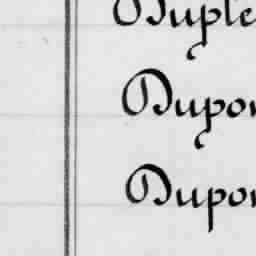 Duple
Dupon
Dupon